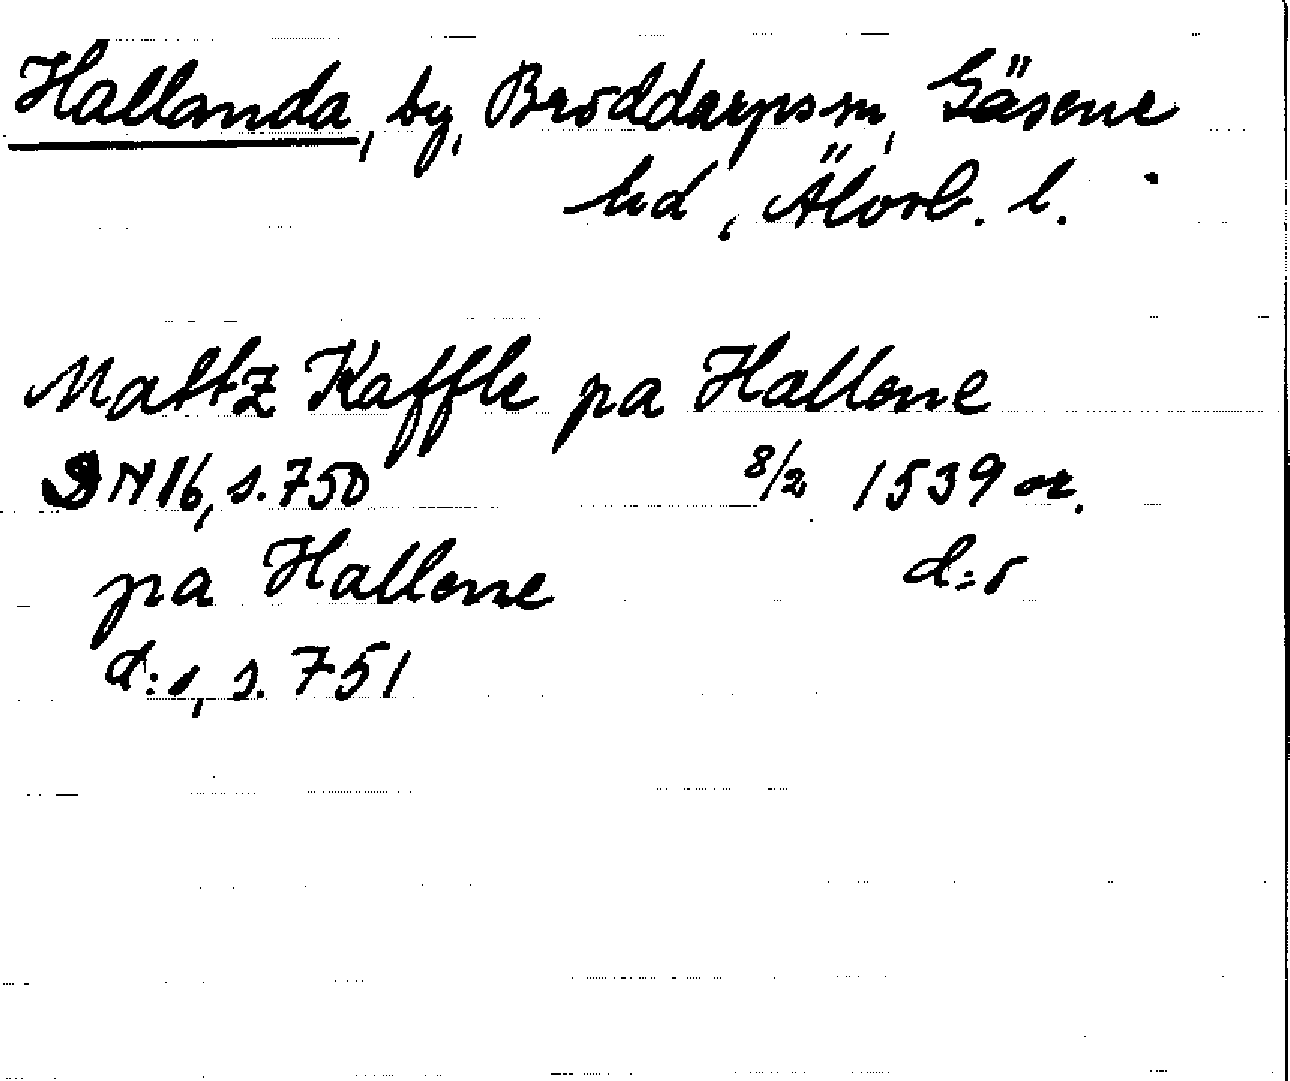 Hallanda, by, Broddarps sn, Gäsene
hd, Älvsb. l.
Mattz Kaffle pa Hallene
DN 16, s. 750 8/2 1539 or.
pa Hallene d:o
d:o, s. 751